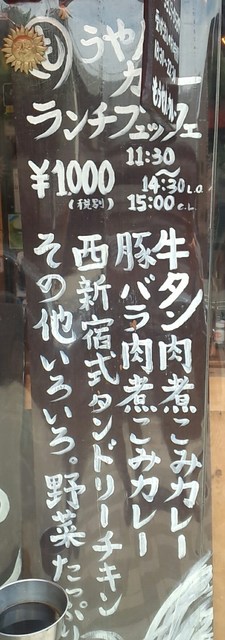 もうやん
カ
ランチブュッフェ
¥1000
(税別)
11:30
〜
14:30 L.O.
15:00 C.L.
牛タン肉煮こみカレー
豚バラ肉煮こみカレー
西新宿式タンドリーチキン
その他いろいろ。野菜たっぷり